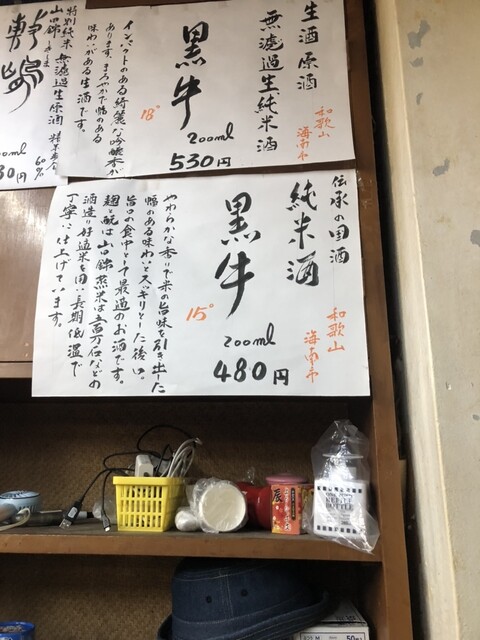 生酒原酒
無濾過生純米酒
和歌山
海南市
黒牛
200ml
530円
18°
インパクトのある綺麗な吟醸香が
あります。まろやかで幅のある
味わいがある生酒です。
特別純米 無濾過生原酒
山田錦
60%
伝承の国酒
純米酒
和歌山
海南市
黒牛
200ml
480円
15°
やわらかな香りで米の旨味を引き出した
幅のある味わいとスッキリとした後口。
旨口の食中酒として最適のお酒です。
麹と酛は山田錦、蒸米は五百万石などの
酒造り好適米を用い長期低温で
丁寧に仕上げています。
BOTTLE